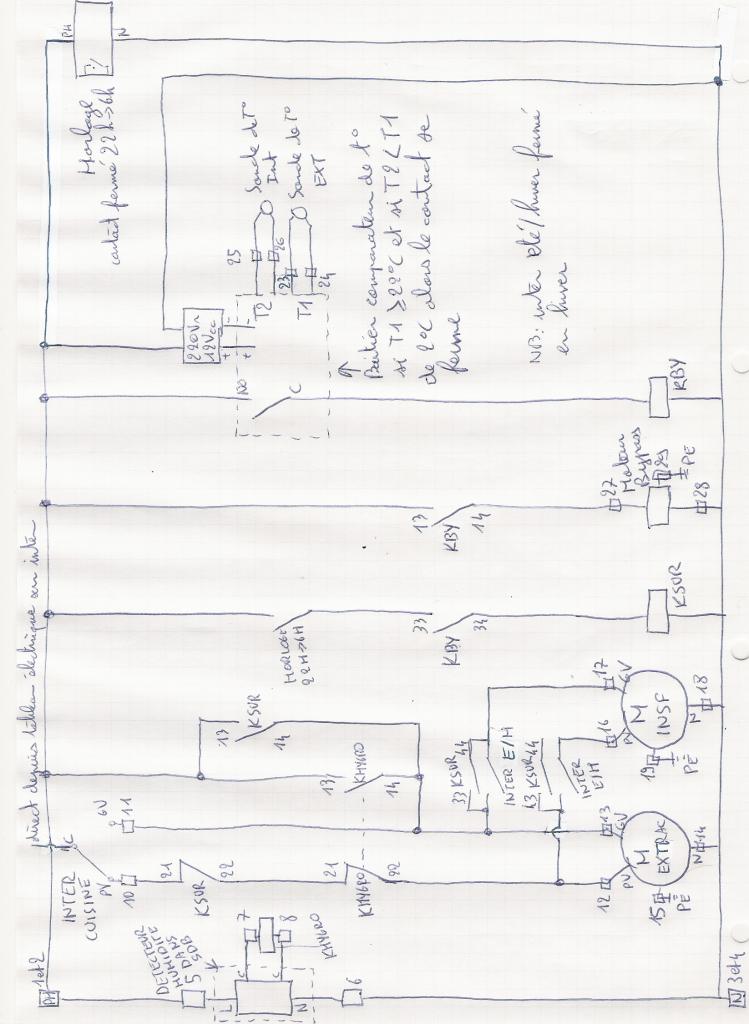 PH
1 et 2
direct depuis tableau électrique ou inter
PH
N
Horloge
contact fermé 22h→6h
INTER
CUISINE
C
PV
10
GV
11
DETECTEUR
HUMIDITE
DANS
SDB
5
L
N
C
C
7
8
KHYGRO
6
21
KSUR
22
21
KHYGRO
22
13
KSUR
14
13
KHYGRO
14
33
KSUR
44
INTER E/H
43
KSUR
44
INTER
E/H
12
PV
13
GV
M
EXTRAC
N
14
15
PE
16
PV
17
GV
M
INSF
N
18
19
PE
HORLOGE
22H→6H
33
KBY
34
KSUR
13
KBY
14
27
Moteur
Bypass
29
PE
28
NO
C
KBY
220V~
12Vcc
+
-
+
-
T2
T1
25
26
23
24
Sonde de T°
Int
Sonde de T°
EXT
Boitier comparateur de t°
si T1 ≥ 22°C et si T2 < T1
de 2°C alors le contact se
ferme
NB: inter été/hiver fermé
en hiver
N
3 et 4